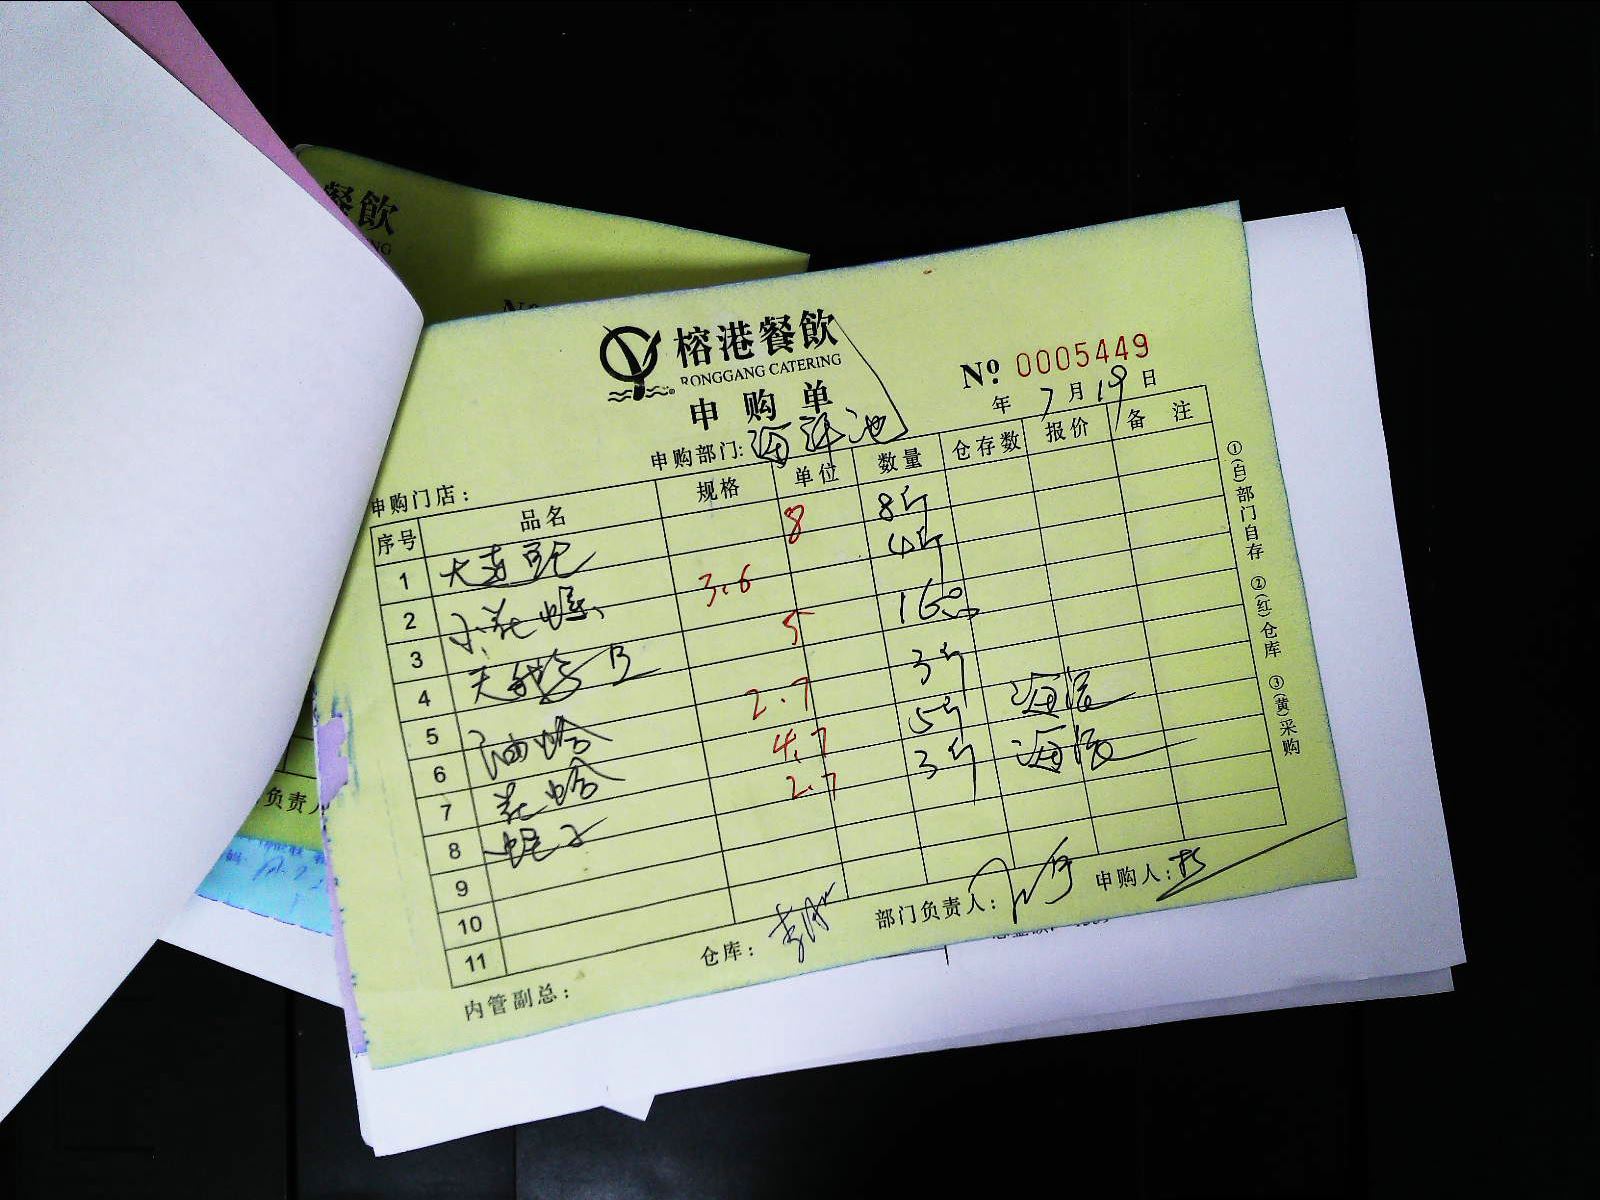 餐飲
Nº
榕港餐飲
RONGGANG CATERING
申购单
Nº 0005449
年 7月19日
申购部门: 海鲜池
申购门店:
序号 品名 规格 单位 数量 仓存数 报价 备注
1 大连鲍 8 8斤
2 小花螺 3.6 4斤
3 天鹅蛋 B 5 16
4 3斤
5 油蛤 2.7 5斤
6 花蛤 4.7 3斤
7 蛏子 2.7
8
9
10
11
仓库:
部门负责人:
申购人:
内管副总:
①(白)部门自存 ②(红)仓库 ③(黄)采购
负责人